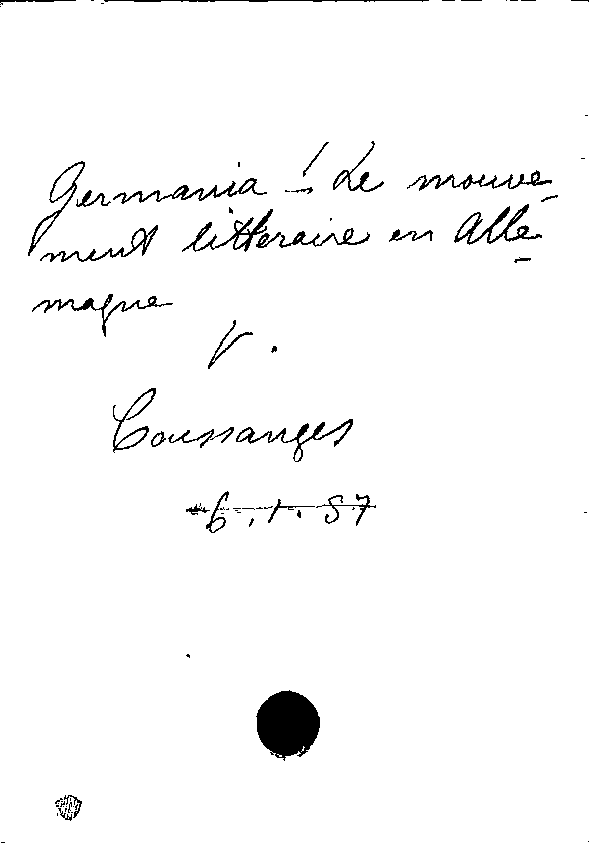 Germania! Le mouve-
ment litteraire en Alle-
magne
V.
Coussanges
6.1.57